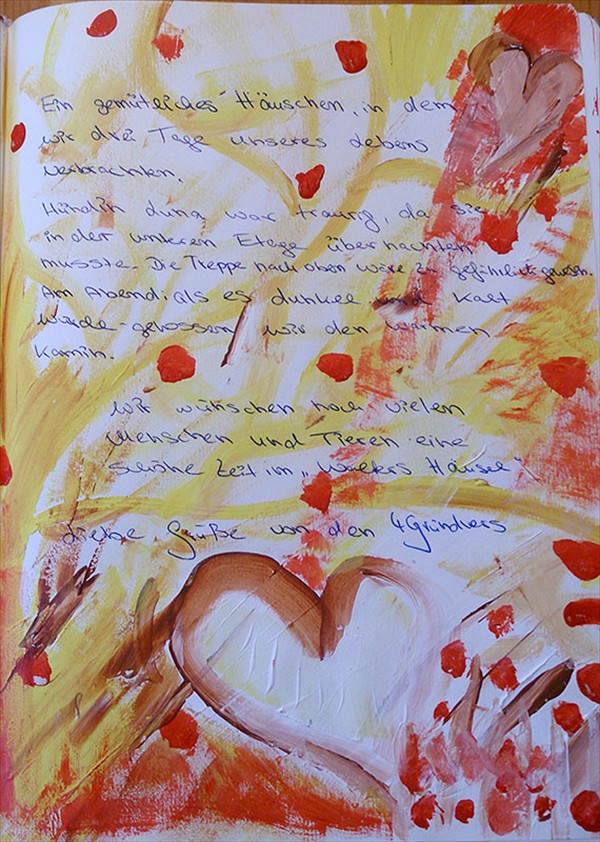 Ein gemütliches Häuschen, in dem
wir drei Tage unseres Lebens
verbrachten.
Hündin Luna war traurig, da sie
in der unteren Etage übernachten
musste. Die Treppe nach oben wäre zu gefährlich gewesen.
Am Abend, als es dunkel und kalt
wurde - genossen wir den warmen
Kamin.
Wir wünschen noch vielen
Menschen und Tieren eine
schöne Zeit im „Walkers Häusel“
Liebe Grüße von den 4 Gründlers